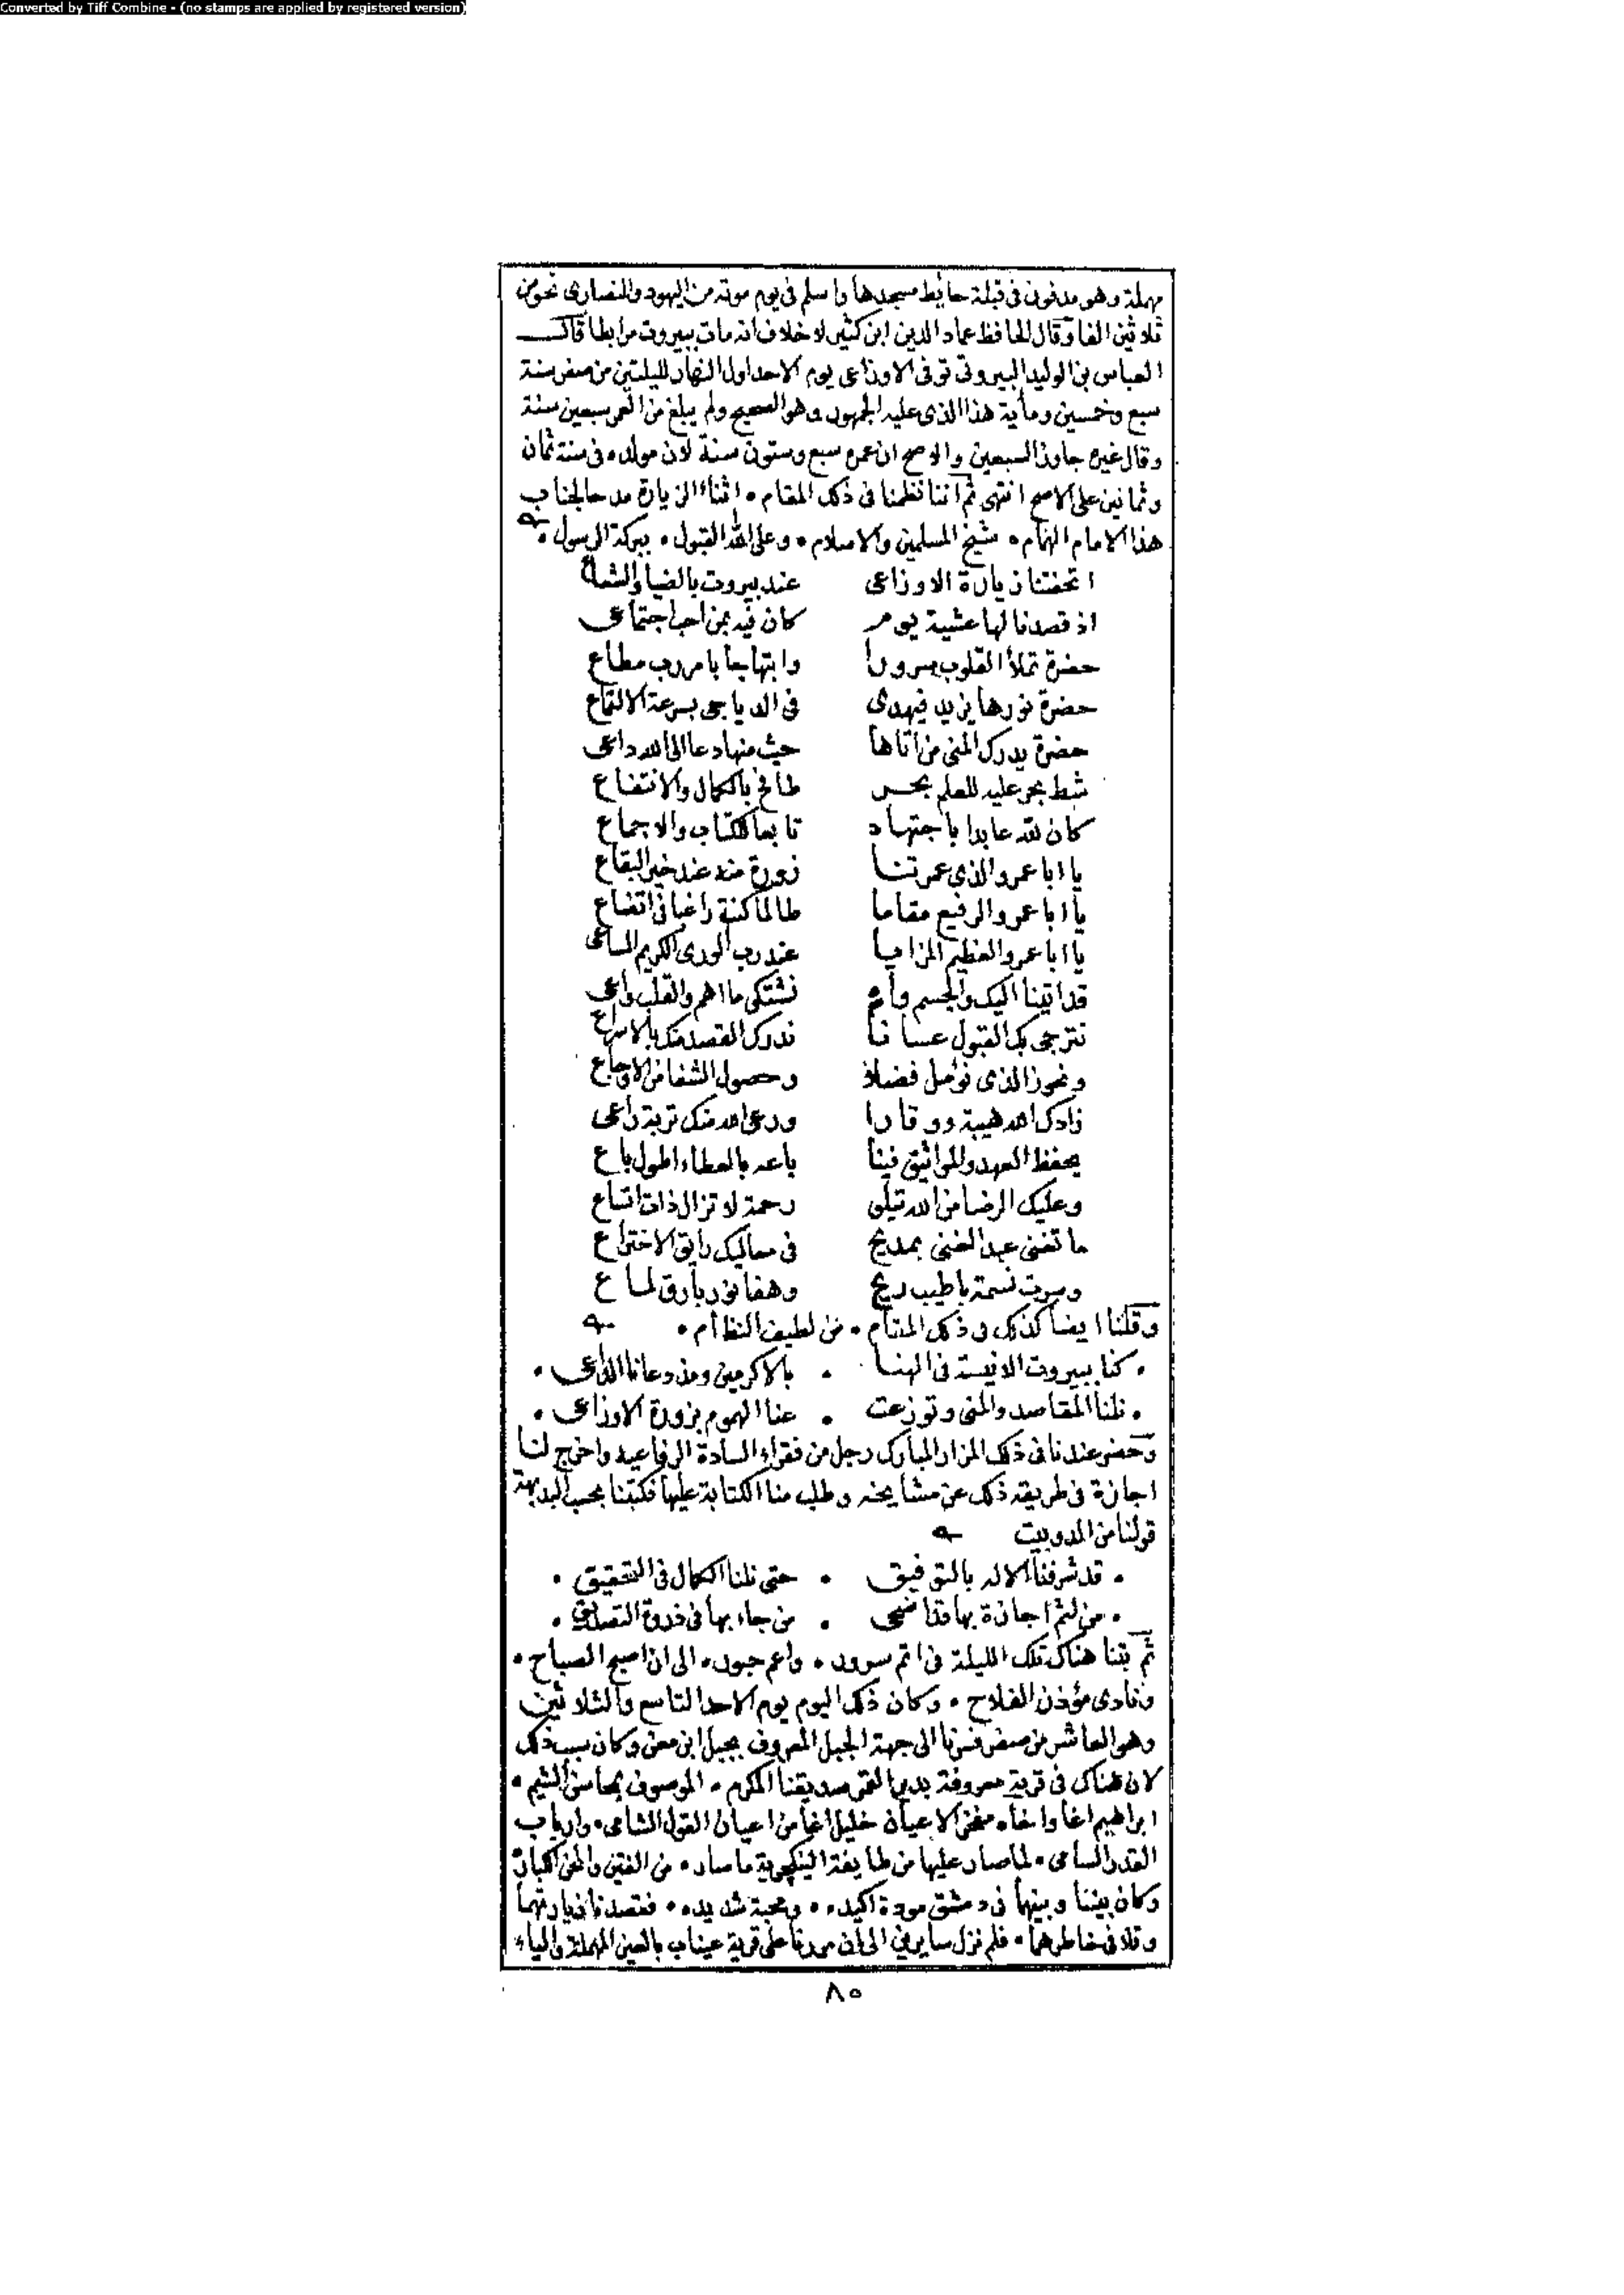 Converted by Tiff Combine - (no stamps are applied by registered version)
مهملة وهو مدفون فى قبلة حايط مسجدها واسلم فى يوم موته من اليهود والنصارى نحو من
ثلاثين الفا وقال الحافظ عماد الدين ابن كثير لا خلاف انه مات ببيروت مرابطا قال
العباس بن الوليد البيروتى توفى الاوزاعى يوم الاحد اول النهار لليلتين من صفر سنة
سبع وخمسين وماية هذا الذى عليه الجمهور وهو الصحيح ولم يبلغ من العمر سبعين سنة
وقال غيره جاوز السبعين والاصح ان عمره سبع وستون سنة لان مولده فى سنة ثمان
وثمانين على الاصح انتهى ثم اننا نظمنا فى ذلك المقام • اثناء الزيارة مدحا لجناب
هذا الامام الهمام • شيخ المسلمين والاسلام • وعلى الله القبول • ببركة الرسول •
اتحفتنا زيارة الاوزاعى عند بيروت بالضيا والشعاع
اذ قصدنا لها عشية يوم كان فيه بمن احب اجتماعى
حضرة تملأ القلوب سرورا وابتهاجا بامر رب مطاع
حضرة نورها يزيد فيهدى فى الدياجى بسرعة الالتماع
حضرة يدرك المنى من اتاها حيث منها دعا الى الله داعى
شط بحر عليه للعلم بحر طافح بالكمال والانتفاع
كان لله عابدا باجتهاد تابعا للكتاب والاجماع
يا ابا عمرو الذى عمرتنا زورة منه عند خير البقاع
يا ابا عمرو الرفيع مقاما طالما كنت راغبا فى اتضاع
يا ابا عمرو العظيم المزايا عند رب الورى الكريم المساعى
قد اتينا اليك والجسم واه نشتكى ما اهم والقلب واعى
نترجى بك القبول عسانا ندرك القصد منك بالاسراع
ونحوز الذى نؤمل فضلا وحصول الشفا من الاوجاع
زادك الله هيبة ووقارا ورعى الله منك تربة راعى
يحفظ العهد والمواثيق فينا باعه بالعطاء اطول باع
وعليك الرضا من الله تتلى رحمة لا تزال ذات اتساع
ما تغنى عبد الغنى بمديح فى معاليك رايق الاختراع
وسرت نسمة باطيب ريح وهفا نور بارق لماع
وقلنا ايضا كذلك فى ذلك المقام • من لطيف النظام •
• كنا ببيروت الانيسة فى الهنا • بالاكرمين ومذ دعانا الداعى •
• نلنا المقاصد والمنى وتوزعت • عنا الهموم بزورة الاوزاعى •
وحضر عندنا فى ذلك المزار المبارك رجل من فقراء السادة الرفاعيه واخرج لنا
اجازة فى طريقه ذلك عن مشايخه وطلب منا الكتابة عليها فكتبنا بحسب البديهة
قولنا من الدوبيت
• قد شرفنا الاله بالتوفيق • حتى نلنا الكمال فى التحقيق •
• من لثم اجازة بها قد اضحى • من جاء بها فى ذروة التصديق •
ثم بتنا هناك تلك الليلة فى اتم سرور • واعم حبور • الى ان اصبح الصباح •
ونادى مؤذن الفلاح • وكان ذلك اليوم يوم الاحد التاسع والثلاثين
وهو العاشر من صفر فسرنا الى جهة الجبل المعروف بجبل ابن معن وكان سبب ذلك
لان هناك فى قرية معروفة بدير القمر صديقنا المكرم • الموصوف بمحاسن الشيم •
ابراهيم اغا واخاه مفخر الاعيان خليل اغا من اعيان القول الشامى • وارباب
القدر السامى • لما صار عليها من طايفة الينكجرية ما صار • من الفتن والمحن الكبار
وكان بيننا وبينهما فى دمشق مودة اكيده • ومحبة شديده • فقصدنا زيارتهما
وتلافى خاطرهما • فلم نزل سايرين الى ان مررنا على قرية عيناب بالعين المهملة والياء
٨٥